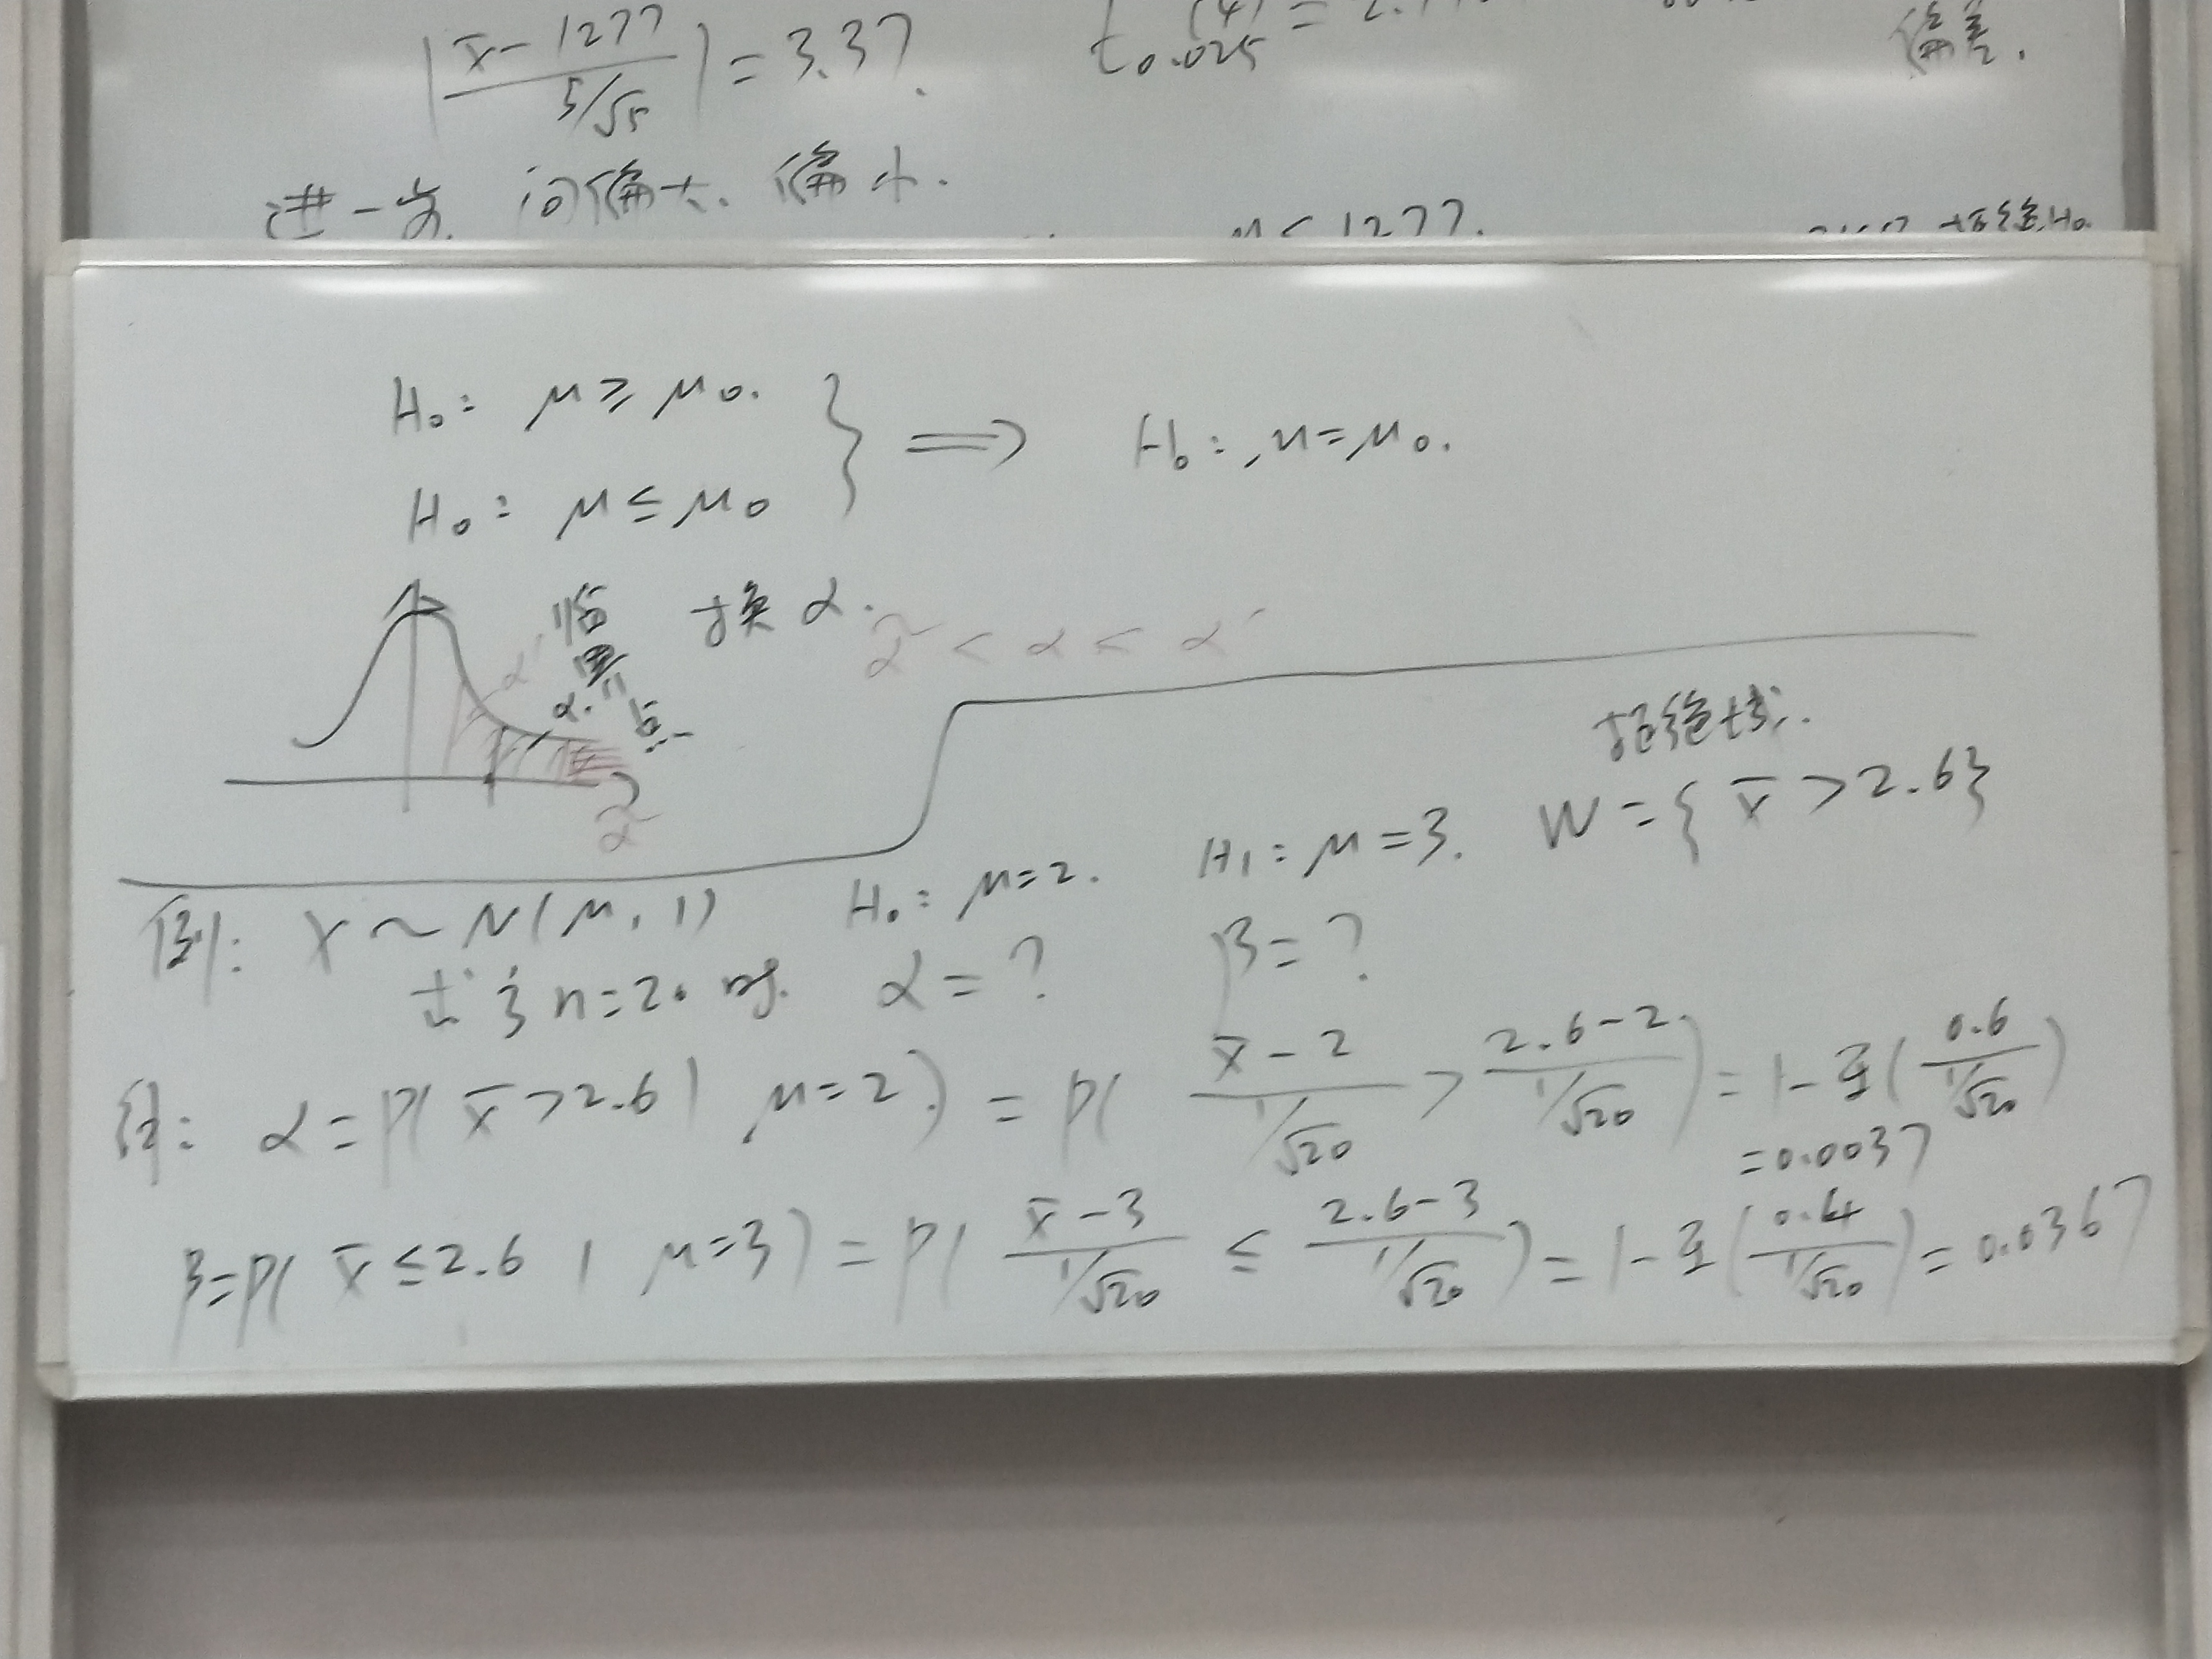 |x̄-1277 / 5/√5| = 3.37.
t0.025(4) = 2.
偏差.
进一步 问偏大、偏小.
μ < 1277.
拒绝H₀.
H₀: μ ≥ μ₀.
H₀: μ ≤ μ₀
} ⟹ H₀: μ = μ₀.
临界点
换 α.
α̃ < α < α′
α′
α.
α̃
拒绝域.
例: X ~ N(μ, 1) H₀: μ=2. H₁: μ=3. W = { x̄ > 2.6}
n=20 时. α = ? β = ?
解: α = P( x̄ > 2.6 | μ=2.) = P( x̄-2 / 1/√20 > 2.6-2. / 1/√20 ) = 1-Φ( 0.6 / 1/√20 )
= 0.0037
β = P( x̄ ≤ 2.6 | μ=3) = P( x̄-3 / 1/√20 ≤ 2.6-3 / 1/√20 ) = 1-Φ( 0.4 / 1/√20 ) = 0.0367